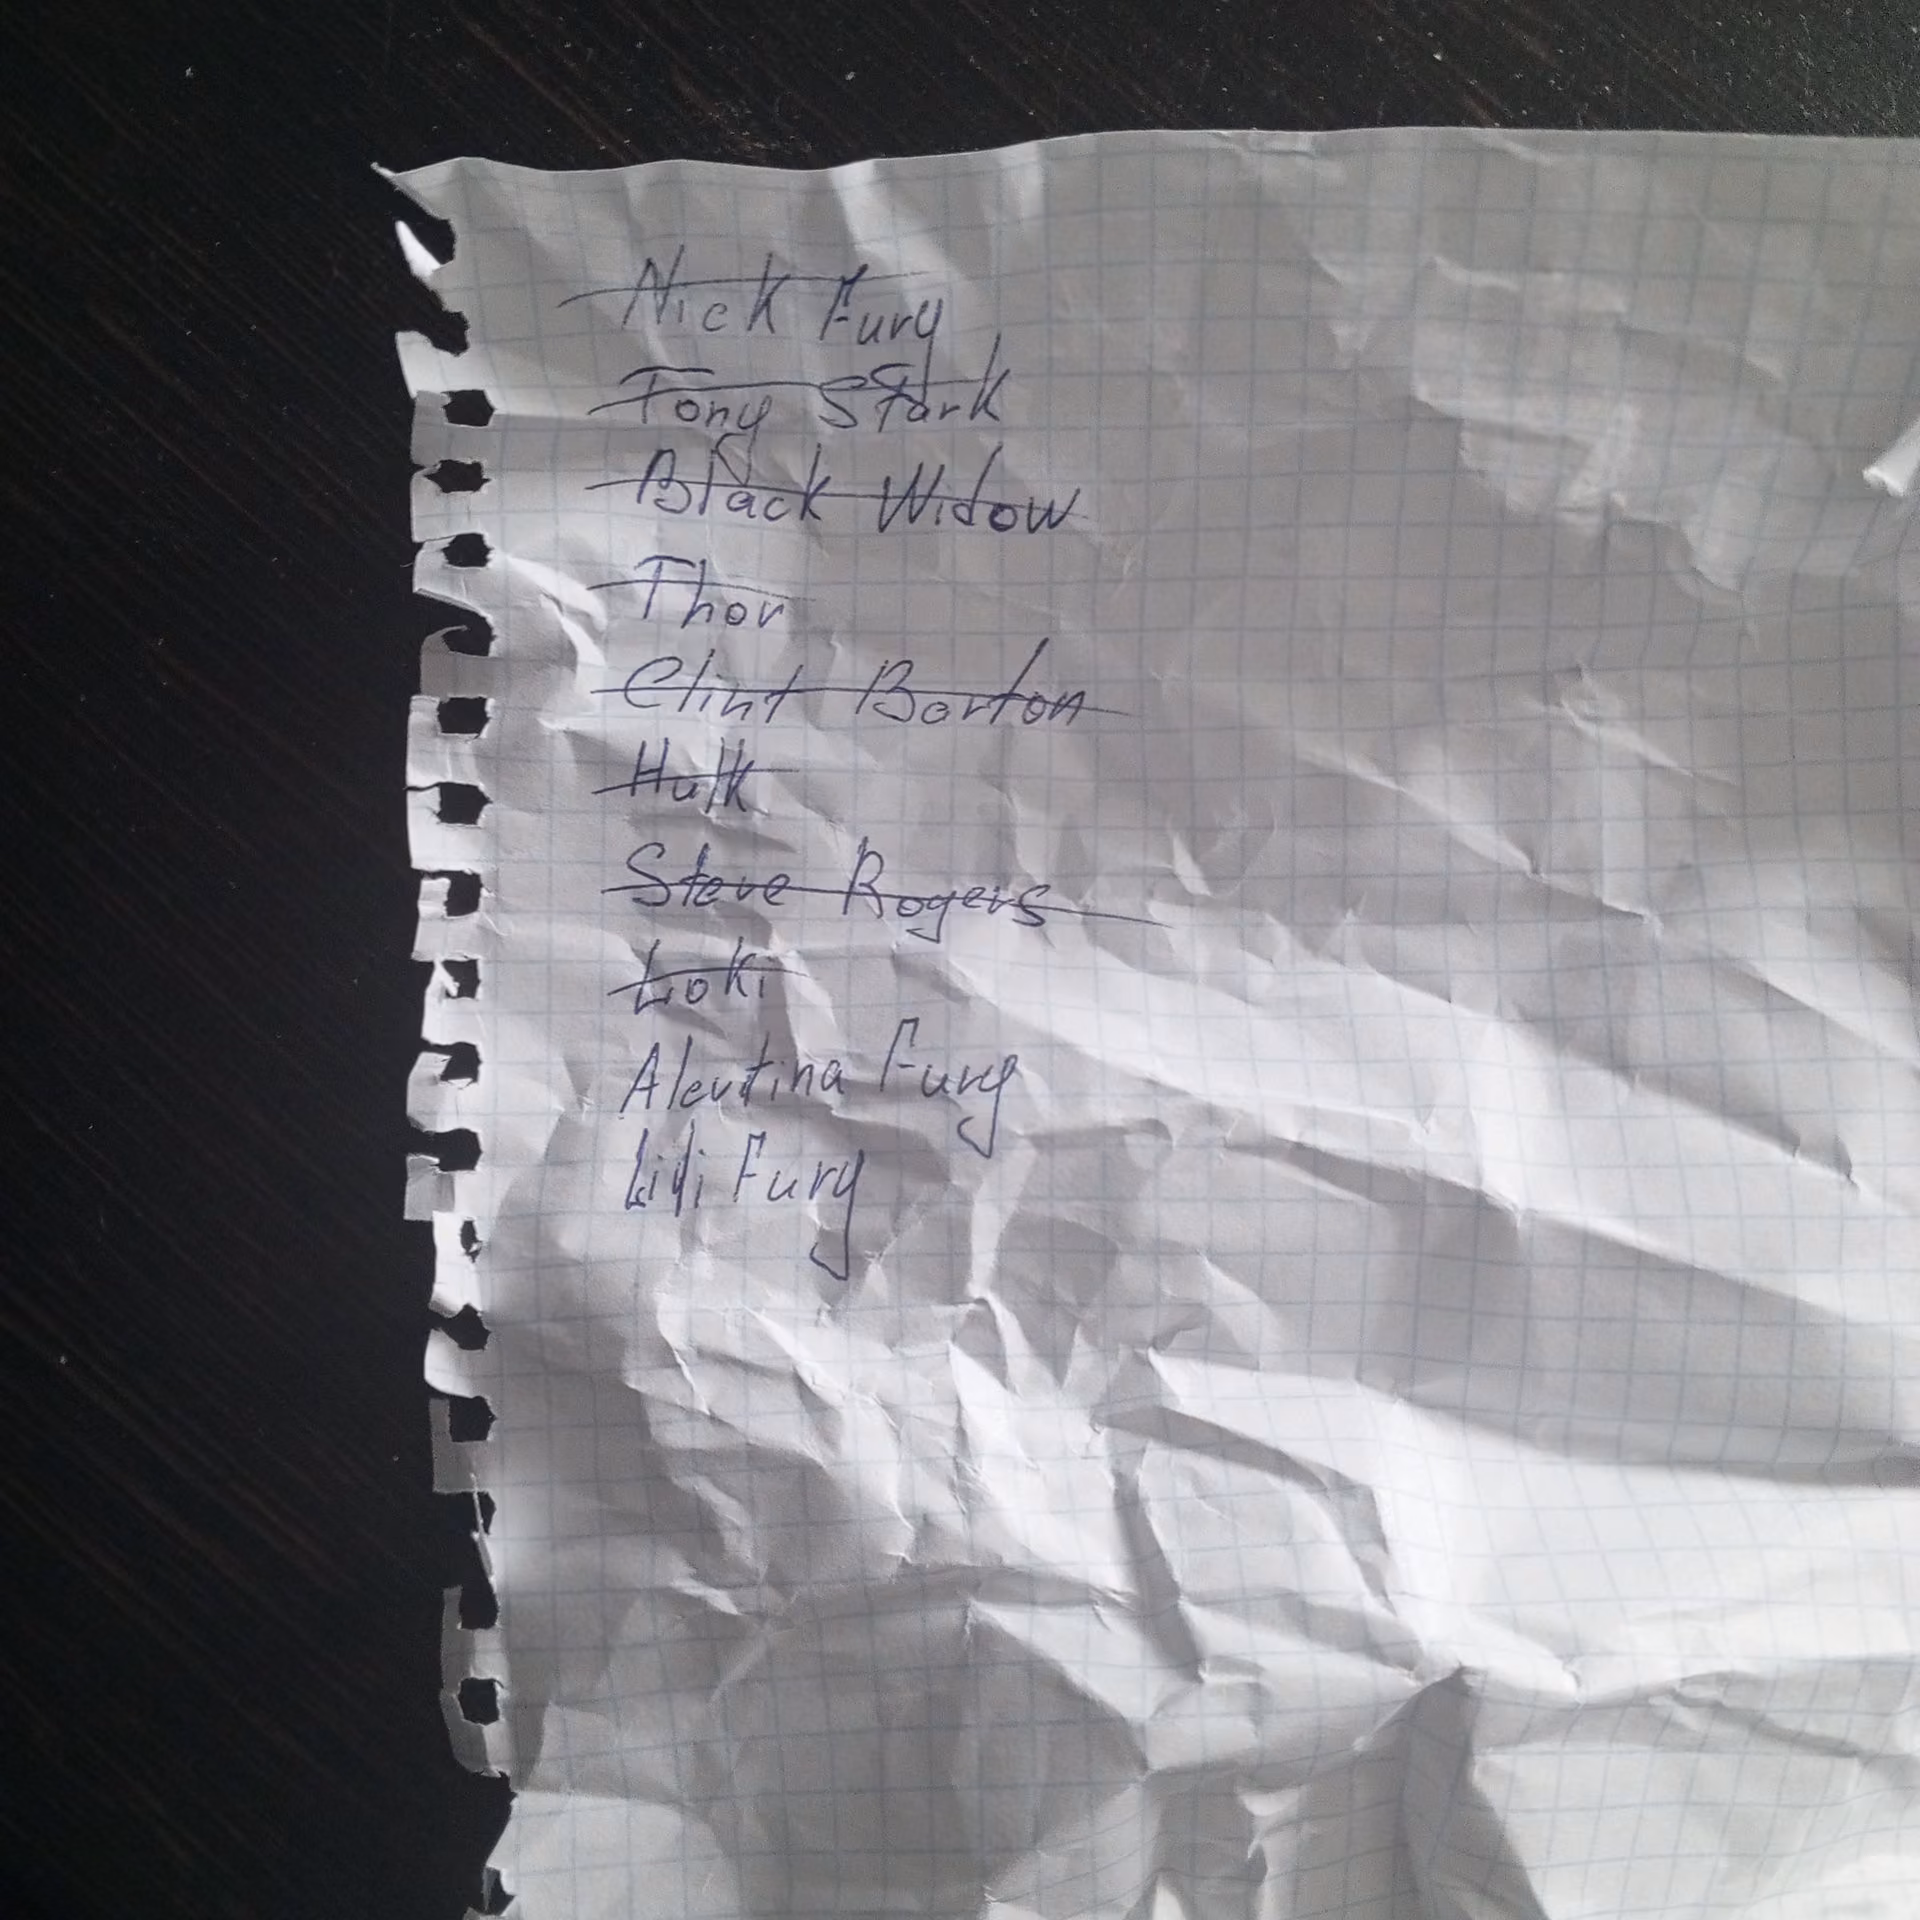 Nick Fury
Tony Stark
Black Widow
Thor
Clint Barton
Hulk
Steve Rogers
Loki
Alevtina Fury
Lili Fury